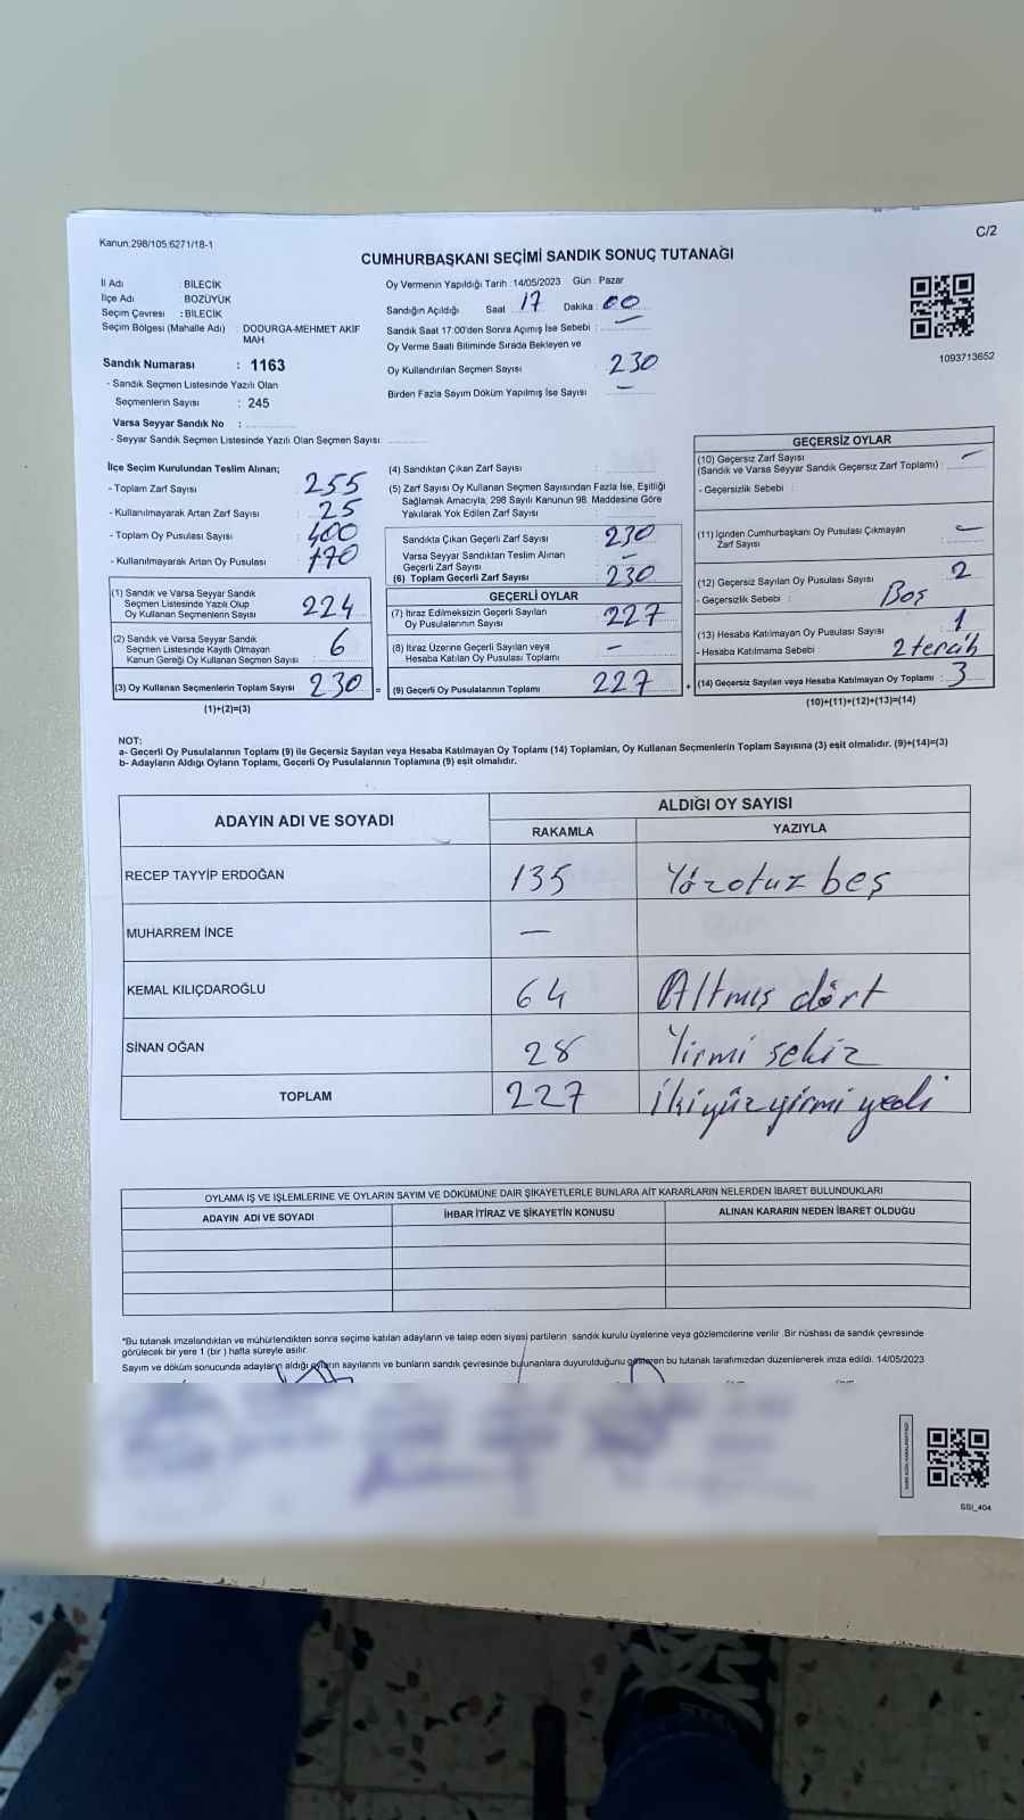 Kanun:298/105 6271/18-1
C/2
CUMHURBAŞKANI SEÇİMİ SANDIK SONUÇ TUTANAĞI
İl Adı BİLECİK
İlçe Adı BOZÜYÜK
Seçim Çevresi : BİLECİK
Seçim Bölgesi (Mahalle Adı) DODURGA-MEHMET AKİF MAH
Sandık Numarası : 1163
- Sandık Seçmen Listesinde Yazılı Olan
Seçmenlerin Sayısı : 245
Varsa Seyyar Sandık No :
- Seyyar Sandık Seçmen Listesinde Yazılı Olan Seçmen Sayısı
Oy Vermenin Yapıldığı Tarih : 14/05/2023 Gün : Pazar
Sandığın Açıldığı Saat 17 Dakika : 00
Sandık Saat 17:00'den Sonra Açımış İse Sebebi : —
Oy Verme Saati Bitiminde Sırada Bekleyen ve
Oy Kullandırılan Seçmen Sayısı 230
Birden Fazla Sayım Döküm Yapılmış İse Sayısı —
1093713652
İlçe Seçim Kurulundan Teslim Alınan;
- Toplam Zarf Sayısı 255
- Kullanılmayarak Artan Zarf Sayısı 25
- Toplam Oy Pusulası Sayısı 400
- Kullanılmayarak Artan Oy Pusulası 170
(1) Sandık ve Varsa Seyyar Sandık
Seçmen Listesinde Yazılı Olup
Oy Kullanan Seçmenlerin Sayısı 224
(2) Sandık ve Varsa Seyyar Sandık
Seçmen Listesinde Kayıtlı Olmayan
Kanun Gereği Oy Kullanan Seçmen Sayısı 6
(3) Oy Kullanan Seçmenlerin Toplam Sayısı 230 =
(1)+(2)=(3)
(4) Sandıktan Çıkan Zarf Sayısı :
(5) Zarf Sayısı Oy Kullanan Seçmen Sayısından Fazla İse, Eşitliği
Sağlamak Amacıyla, 298 Sayılı Kanunun 98. Maddesine Göre
Yakılarak Yok Edilen Zarf Sayısı
Sandıkta Çıkan Geçerli Zarf Sayısı 230
Varsa Seyyar Sandıktan Teslim Alınan
Geçerli Zarf Sayısı —
(6) Toplam Geçerli Zarf Sayısı 230
GEÇERLİ OYLAR
(7) İtiraz Edilmeksizin Geçerli Sayılan
Oy Pusulalarının Sayısı 227
(8) İtiraz Üzerine Geçerli Sayılan veya
Hesaba Katılan Oy Pusulası Toplamı —
(9) Geçerli Oy Pusulalarının Toplamı 227 +
GEÇERSİZ OYLAR
(10) Geçersiz Zarf Sayısı —
(Sandık ve Varsa Seyyar Sandık Geçersiz Zarf Toplamı)
- Geçersizlik Sebebi :
(11) İçinden Cumhurbaşkanı Oy Pusulası Çıkmayan
Zarf Sayısı —
(12) Geçersiz Sayılan Oy Pusulası Sayısı 2
- Geçersizlik Sebebi : Boş
(13) Hesaba Katılmayan Oy Pusulası Sayısı 1
- Hesaba Katılmama Sebebi : 2 tercih
(14) Geçersiz Sayılan veya Hesaba Katılmayan Oy Toplamı : 3
(10)+(11)+(12)+(13)=(14)
NOT:
a- Geçerli Oy Pusulalarının Toplamı (9) ile Geçersiz Sayılan veya Hesaba Katılmayan Oy Toplamı (14) Toplamları, Oy Kullanan Seçmenlerin Toplam Sayısına (3) eşit olmalıdır. (9)+(14)=(3)
b- Adayların Aldığı Oyların Toplamı, Geçerli Oy Pusulalarının Toplamına (9) eşit olmalıdır.
ADAYIN ADI VE SOYADI
ALDIĞI OY SAYISI
RAKAMLA YAZIYLA
RECEP TAYYİP ERDOĞAN 135 Yüzotuz beş
MUHARREM İNCE —
KEMAL KILIÇDAROĞLU 64 Altmış dört
SİNAN OĞAN 28 Yirmi sekiz
TOPLAM 227 İkiyüzyirmi yedi
OYLAMA İŞ VE İŞLEMLERİNE VE OYLARIN SAYIM VE DÖKÜMÜNE DAİR ŞİKAYETLERLE BUNLARA AİT KARARLARIN NELERDEN İBARET BULUNDUKLARI
ADAYIN ADI VE SOYADI İHBAR İTİRAZ VE ŞİKAYETİN KONUSU ALINAN KARARIN NEDEN İBARET OLDUĞU
*Bu tutanak imzalandıktan ve mühürlendikten sonra seçime katılan adayların ve talep eden siyasi partilerin sandık kurulu üyelerine veya gözlemcilerine verilir. Bir nüshası da sandık çevresinde
görülecek bir yere 1 (bir) hafta süreyle asılır.
Sayım ve döküm sonucunda adayların aldığı oyların sayılarını ve bunların sandık çevresinde bulunanlara duyurulduğunu gösteren bu tutanak tarafımızdan düzenlenerek imza edildi. 14/05/2023
SSI_404